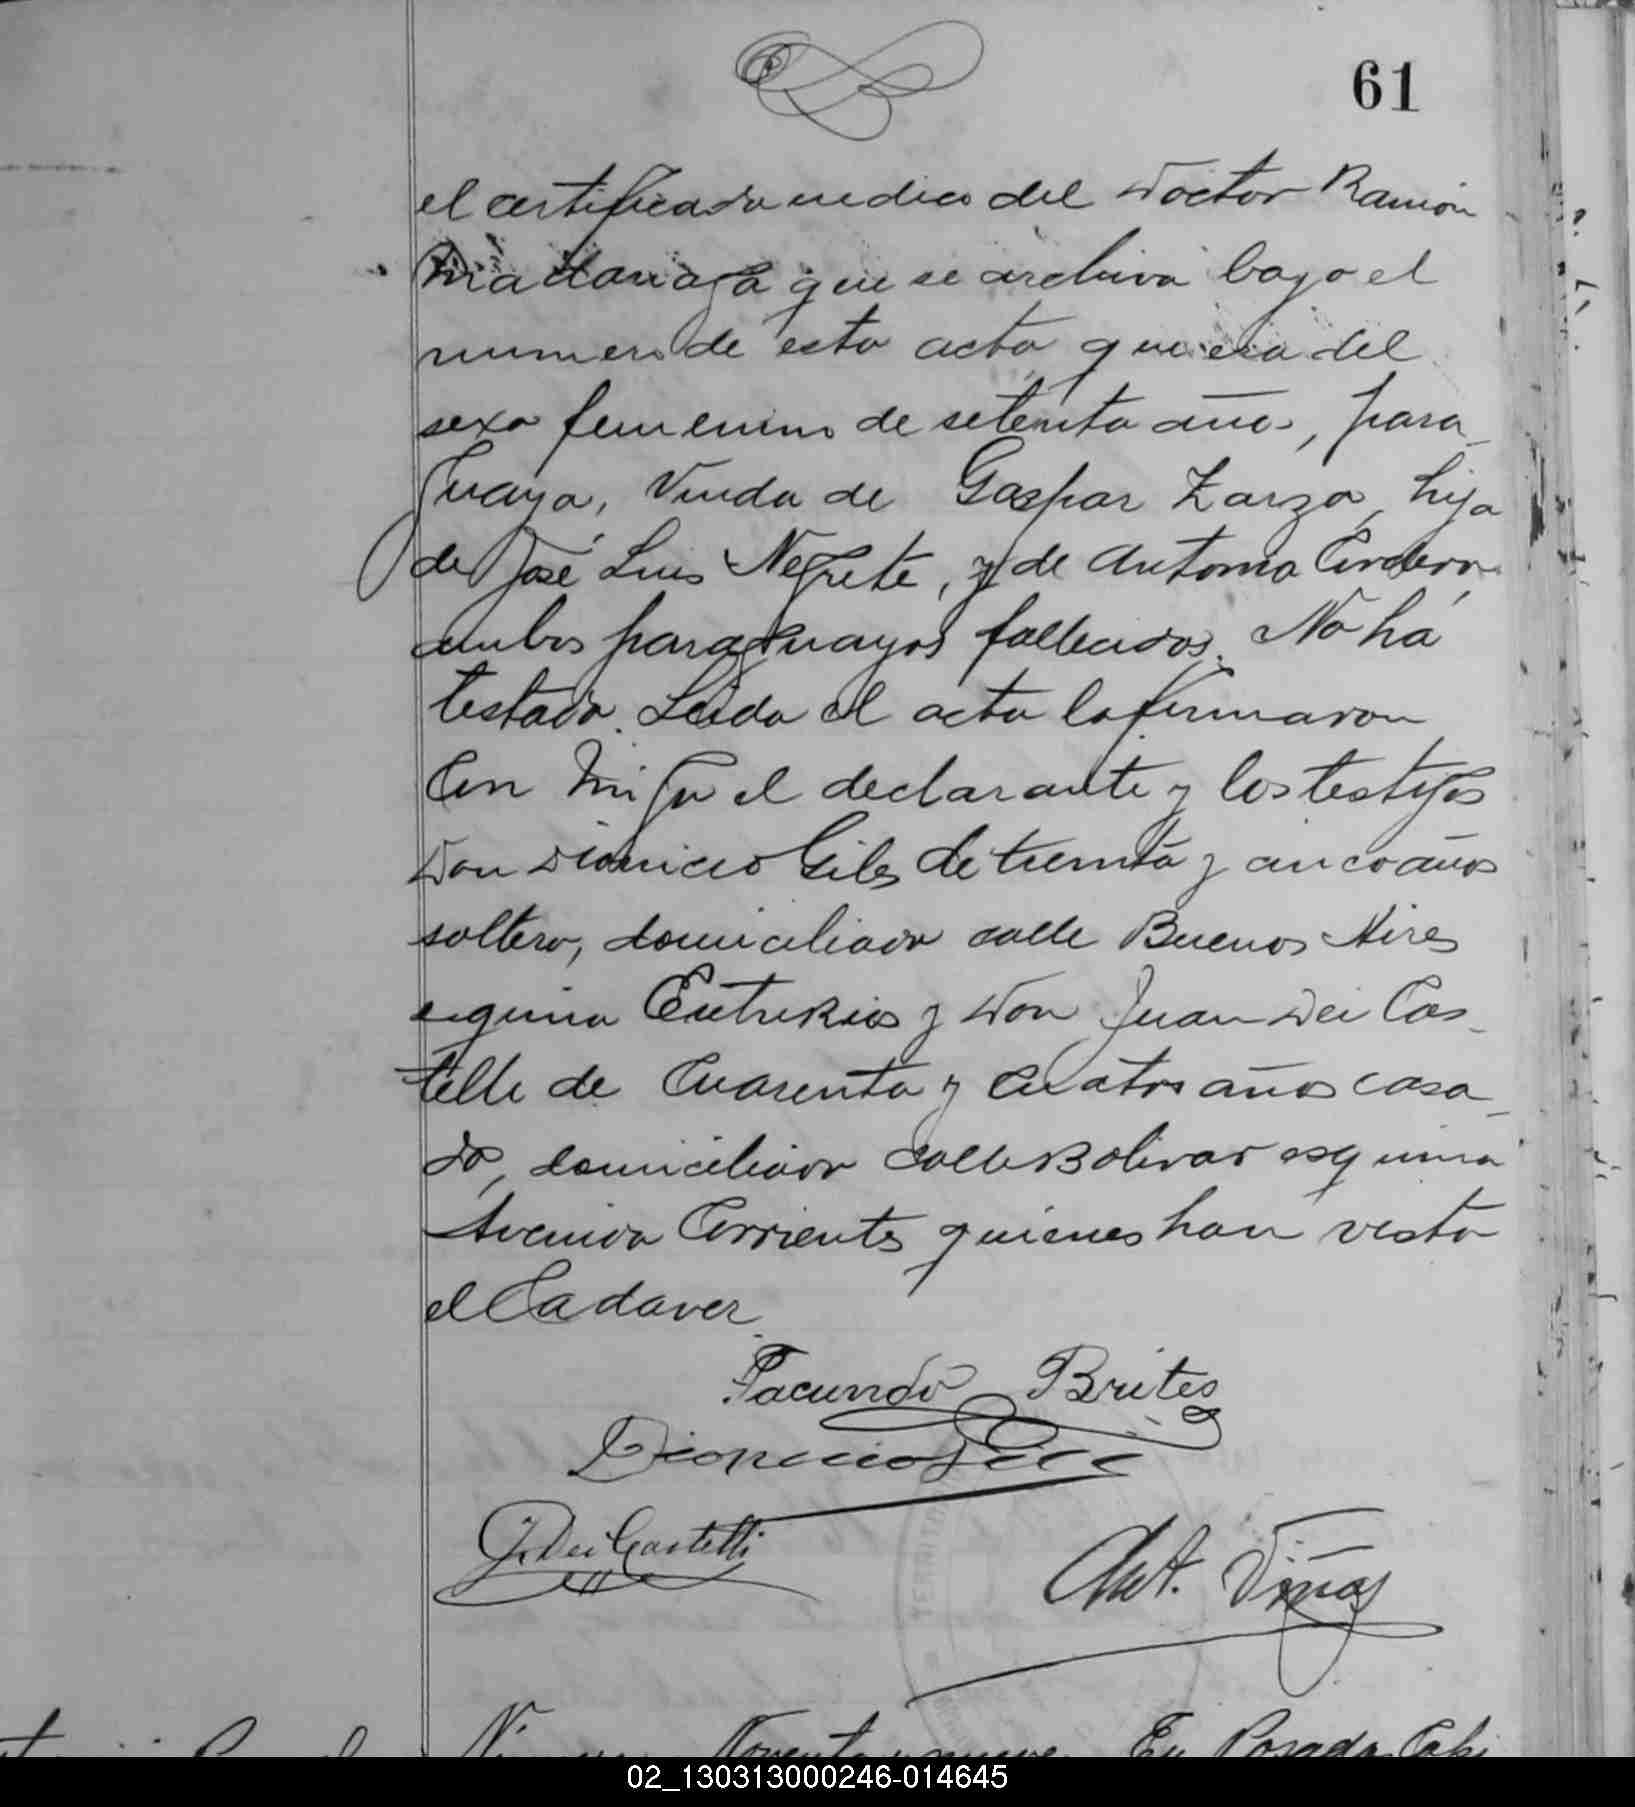 61
el certificado medico del Doctor Ramón
Madariaga que se archiva bajo el
numero de esta acta que era del
sexo femenino de setenta años, para-
guaya, Viuda de Gaspar Zarza, hija
de José Luis Negrete, y de Antonia Cordero,
ambos paraguayos fallecidos. No há
testado. Leida el acta la firmaron
Con migo el declarante y los testigos
Don Dionicio Giles de treinta y cinco años
soltero, domiciliado calle Buenos Aires
esquina Entre Rios y Don Juan Dei Cas-
telle de Cuarenta y cuatro años casa-
do, domiciliado calle Bolivar esquina
Avenida Corrientes quienes han visto
el Cadaver
Facundo Brites
Dionicio
J. Dei Castelli
Ant. Viñas
TERRITO
Noventa y nueve. En Posadas Capi
02_130313000246-014645